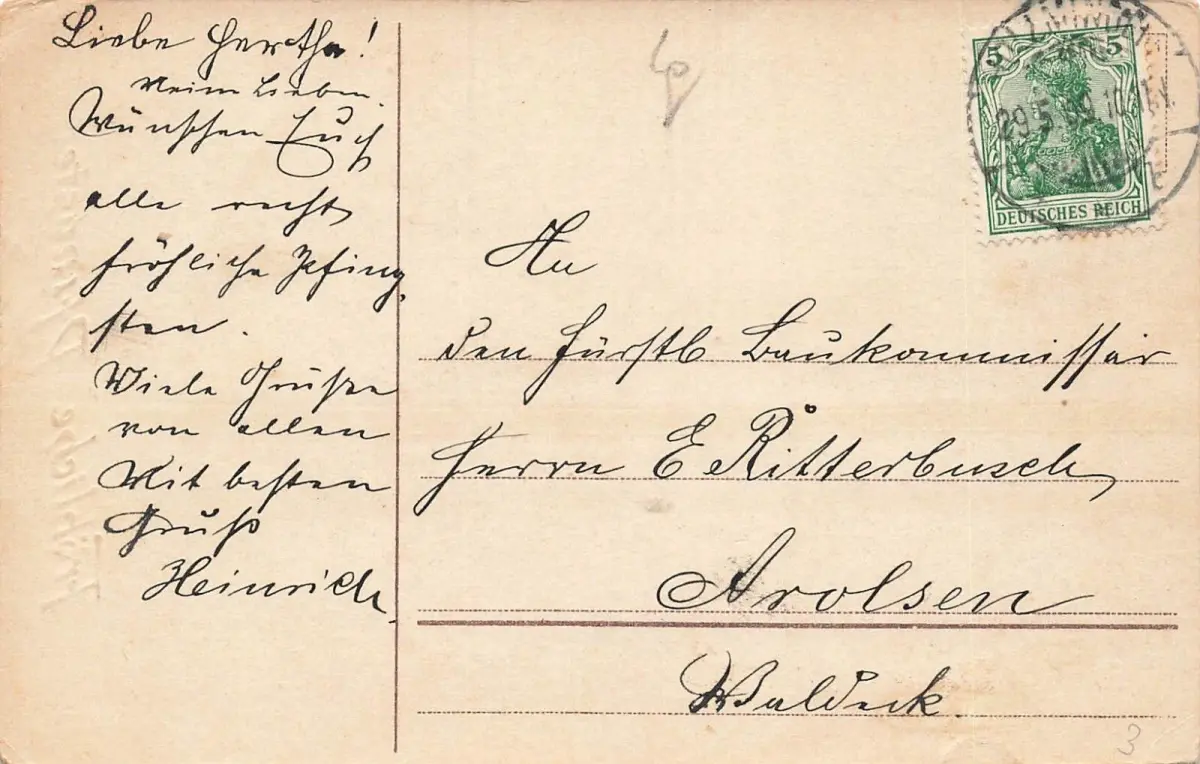 Liebe Hertha!
Meine Lieben.
Wünschen Euch
alle recht
fröhliche Pfing,
sten.
Viele Grüße
von allen
Mit besten
Gruß
Heinrich
5 5
29.5.09.10-11V.
DEUTSCHES REICH
An
den Fürstl Baukommissär
Herrn E Ritterbusch
Arolsen
Waldeck.
3